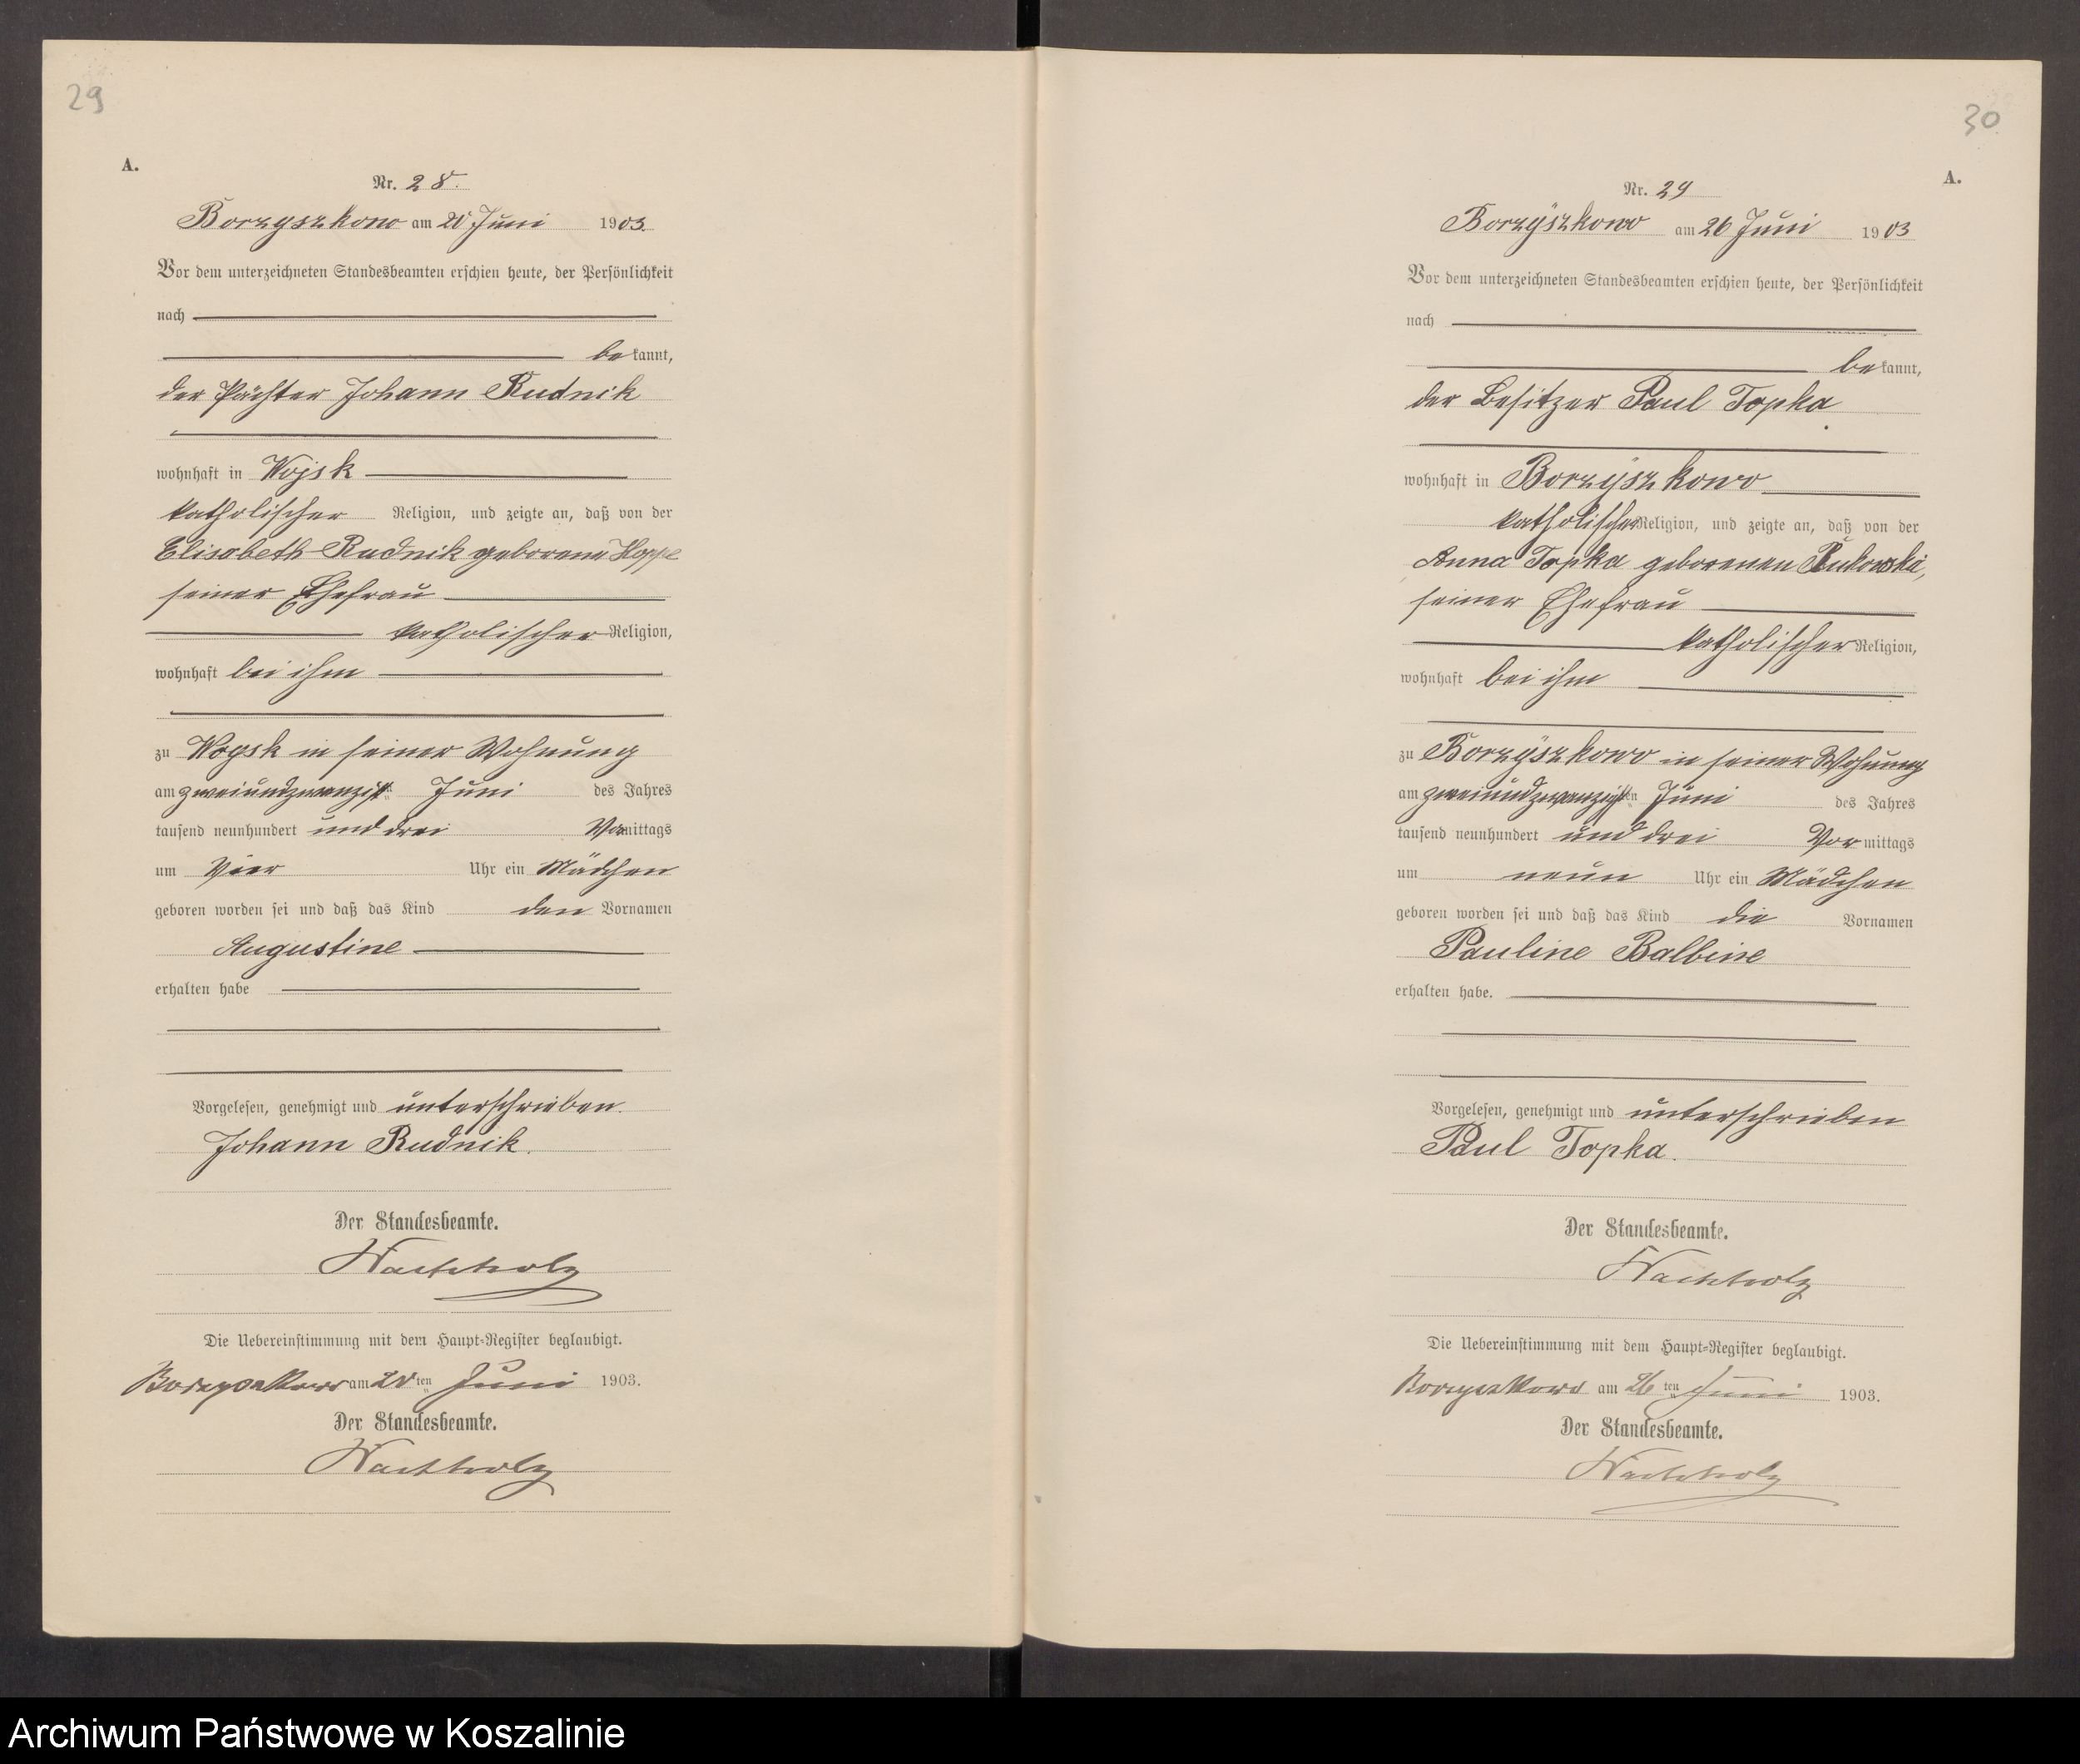 29
A.
Nr. 28.
Borzyszkowo am Juni 1903.
Vor dem unterzeichneten Standesbeamten erschien heute, der Persönlichkeit
nach
bekannt,
der Pächter Johann Rudnik
wohnhaft in Wojsk
katholischer Religion, und zeigte an, daß von der
Elisabeth Rudnik geborene Hoppe
seiner Ehefrau
katholischer Religion,
wohnhaft bei ihm
zu Woysk in seiner Wohnung
am zweiundzwanzigst Juni des Jahres
tausend neunhundert und drei Vormittags
um Vier Uhr ein Mädchen
geboren worden sei und daß das Kind den Vornamen
Augustine
erhalten habe
Vorgelesen, genehmigt und unterschrieben.
Johann Rudnik.
Der Standesbeamte.
Wachholz
Die Uebereinstimmung mit dem Haupt-Register beglaubigt.
Borzyszkowo am ten Juni 1903.
Der Standesbeamte.
Wachholz
30
A.
Nr. 29
Borzÿszkowo am 26 Juni 1903
Vor dem unterzeichneten Standesbeamten erschien heute, der Persönlichkeit
nach
bekannt,
der Besitzer Paul Topka
wohnhaft in Borzÿszkowo
katholischer Religion, und zeigte an, daß von der
Anna Topka geborenen
seiner Ehefrau
katholischer Religion,
wohnhaft bei ihm
zu Borzÿszkowo in seiner Wohnung
am zweiundzwanzigsten Juni des Jahres
tausend neunhundert und drei Vormittags
um neun Uhr ein Mädchen
geboren worden sei und daß das Kind die Vornamen
Pauline Balbine
erhalten habe.
Vorgelesen, genehmigt und unterschrieben
Paul Topka.
Der Standesbeamte.
Wachholz
Die Uebereinstimmung mit dem Haupt-Register beglaubigt.
Borzyszkowo am 26 ten Juni 1903.
Der Standesbeamte.
Wachholz
Archiwum Państwowe w Koszalinie